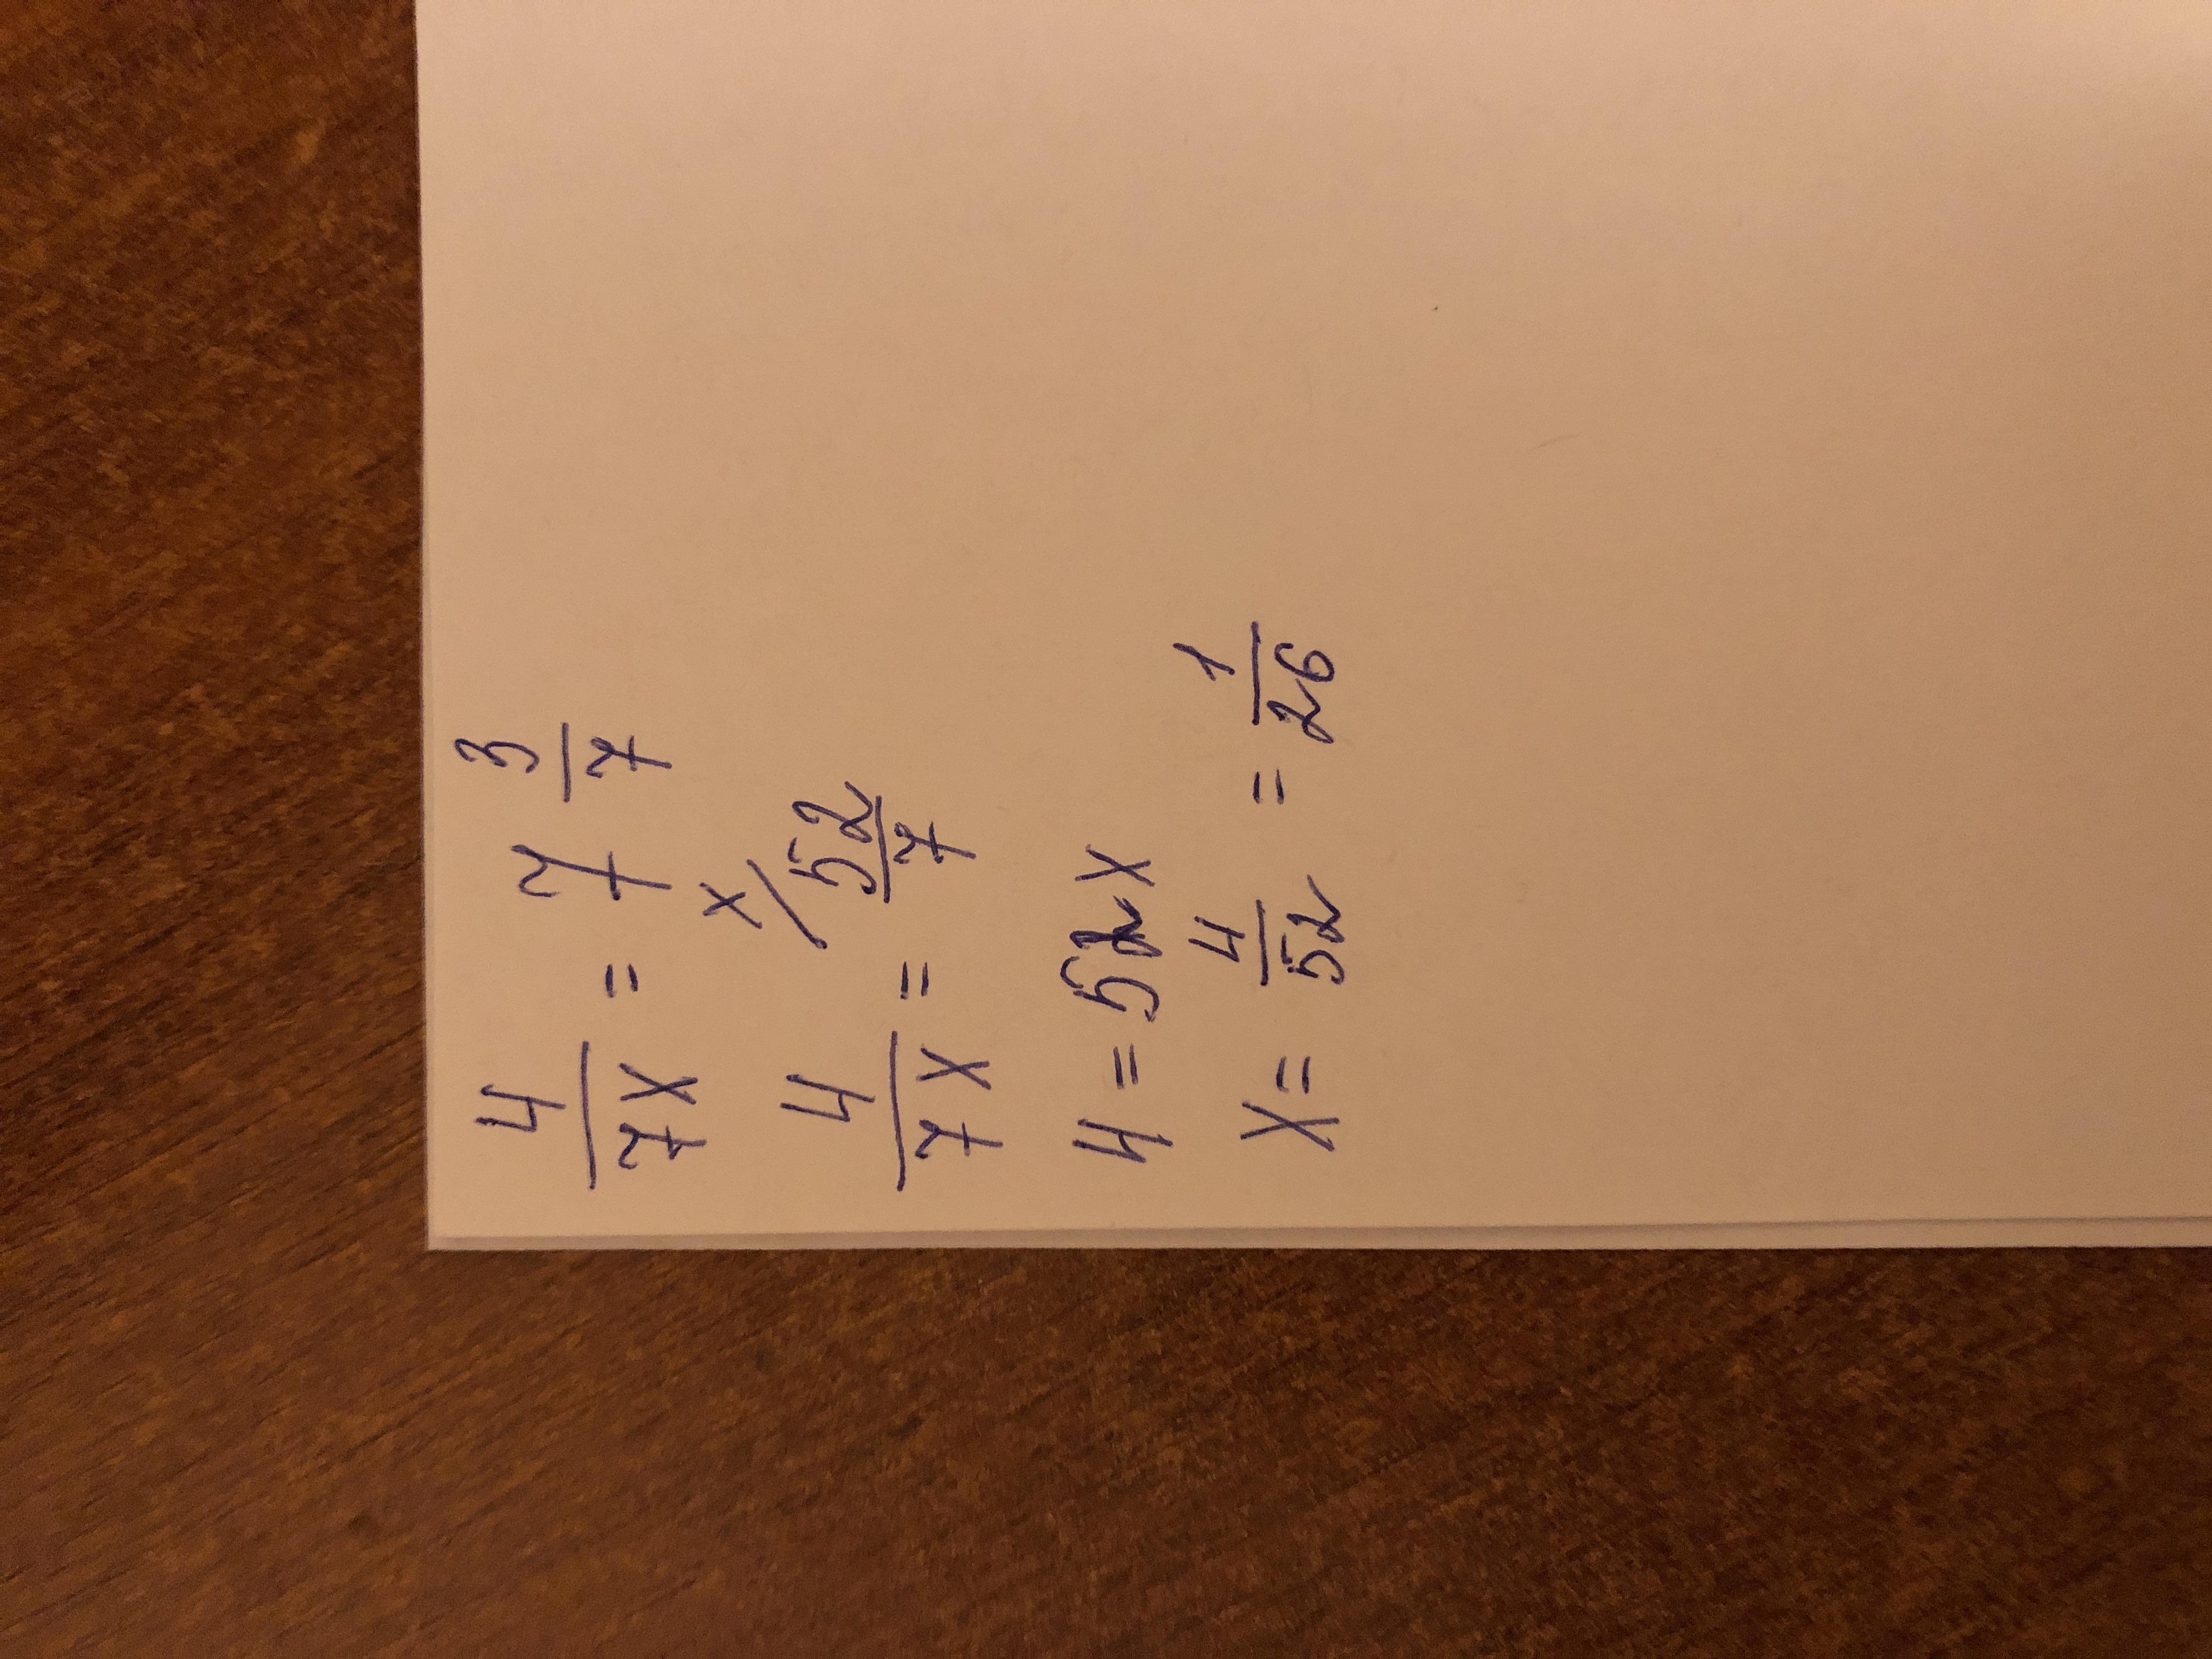 4/7x = 7 3/7
4/7x = x/ 52/7
4 = 52x
x = 4/52 = 1/26